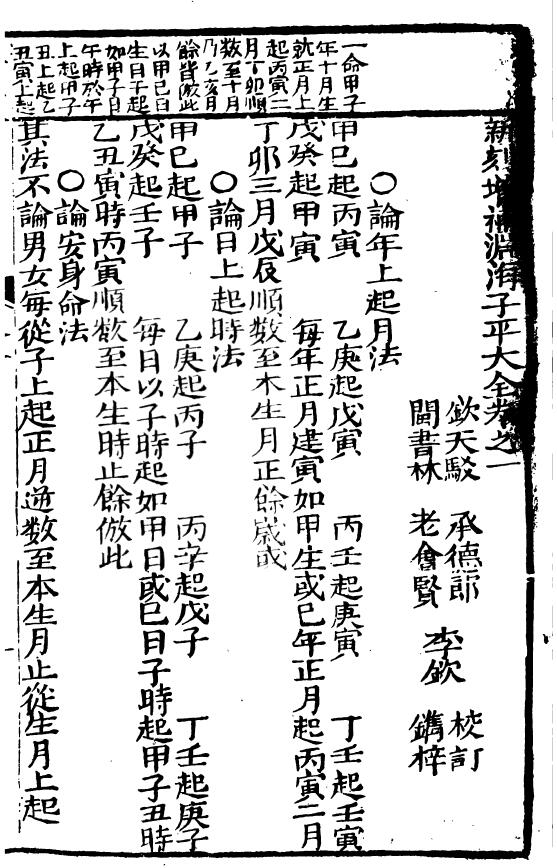 新刻增補淵海子平大全卷之一
欽天監 承德郎 李欽 校訂
閩書林 老會賢 鐫梓
○論年上起月法
甲巳起丙寅 乙庚起戊寅 丙壬起庚寅 丁壬起壬寅
戊癸起甲寅 每年正月建寅如甲生或巳年正月起丙寅二月
丁卯三月戊辰順數至本生月正餘歲或
○論日上起時法
甲巳起甲子 乙庚起丙子 丙辛起戊子 丁壬起庚子
戊癸起壬子 每日以子時起如甲日或巳日子時起甲子丑時
乙丑寅時丙寅順欲至本生時止餘倣此
○論安身命法
其法不論男女每從子上起正月逆数至本生月止從生月上起
一命甲子
年十月生
就正月上
起丙寅二
月丁卯順
数至十月
乃乙亥月
餘皆倣此
以甲巳日
生日干起
如甲子日
午時於午
上起甲子
丑上起乙
丑寅上起